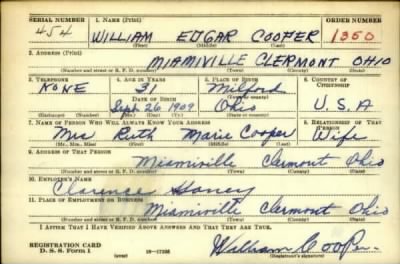 SERIAL NUMBER 1. NAME (Print) ORDER NUMBER
454 WILLIAM EDGAR COOPER 1350
(First) (Middle) (Last)
2. ADDRESS (Print)
MIAMIVILLE CLERMONT OHIO
(Number and street or R. F. D. number) (Town) (County) (State)
3. TELEPHONE 4. AGE IN YEARS 5. PLACE OF BIRTH 6. COUNTRY OF CITIZENSHIP
NONE 31 Milford
DATE OF BIRTH (Town or county)
Sept. 26 1909 Ohio U.S.A
(Exchange) (No.) (Mo.) (Day) (Yr.) (State or country)
7. NAME OF PERSON WHO WILL ALWAYS KNOW YOUR ADDRESS 8. RELATIONSHIP OF THAT PERSON
Mrs Ruth Marie Cooper Wife
(Mr., Mrs., Miss) (First) (Middle) (Last)
9. ADDRESS OF THAT PERSON
Miamiville Clermont Ohio
(Number and street or R. F. D. number) (Town) (County) (State)
10. EMPLOYER'S NAME
Clarence
11. PLACE OF EMPLOYMENT OR BUSINESS
Miamiville Clermont Ohio
(Number and street or R. F. D. number) (Town) (County) (State)
I AFFIRM THAT I HAVE VERIFIED ABOVE ANSWERS AND THAT THEY ARE TRUE.
REGISTRATION CARD
D. S. S. Form 1 (over) William Cooper
(Registrant's signature)